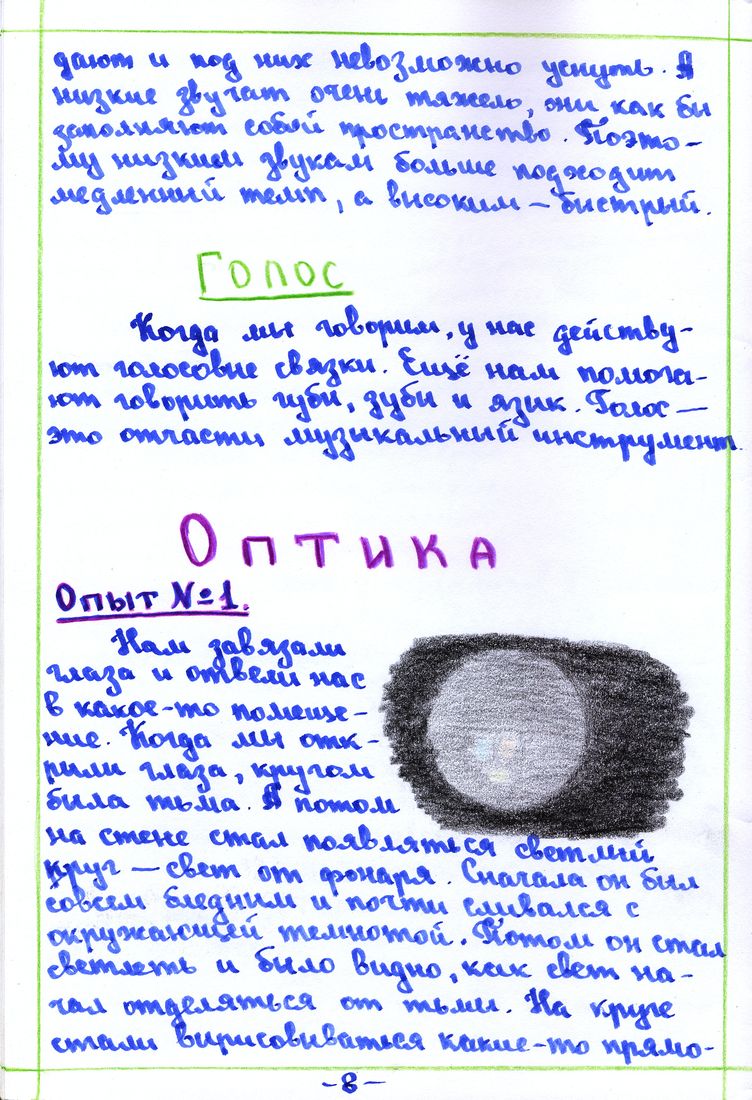 дают и под них невозможно уснуть. А
низкие звучат очень тяжело, они как бы
заполняют собой пространство. Поэто-
му низким звукам больше подходит
медленный темп, а высоким — быстрый.
Голос
Когда мы говорим, у нас действу-
ют голосовые связки. Ещё нам помога-
ют говорить губы, зубы и язык. Голос —
это отчасти музыкальный инструмент.
Оптика
Опыт №1.
Нам завязали
глаза и отвели нас
в какое-то помеще-
ние. Когда мы отк-
рыли глаза, кругом
была тьма. А потом
на стене стал появляться светлый
круг — свет от фонаря. Сначала он был
совсем бледным и почти сливался с
окружающей темнотой. Потом он стал
светлеть и было видно, как свет на-
чал отделяться от тьмы. На круге
стали вырисовываться какие-то прямо-
-8-